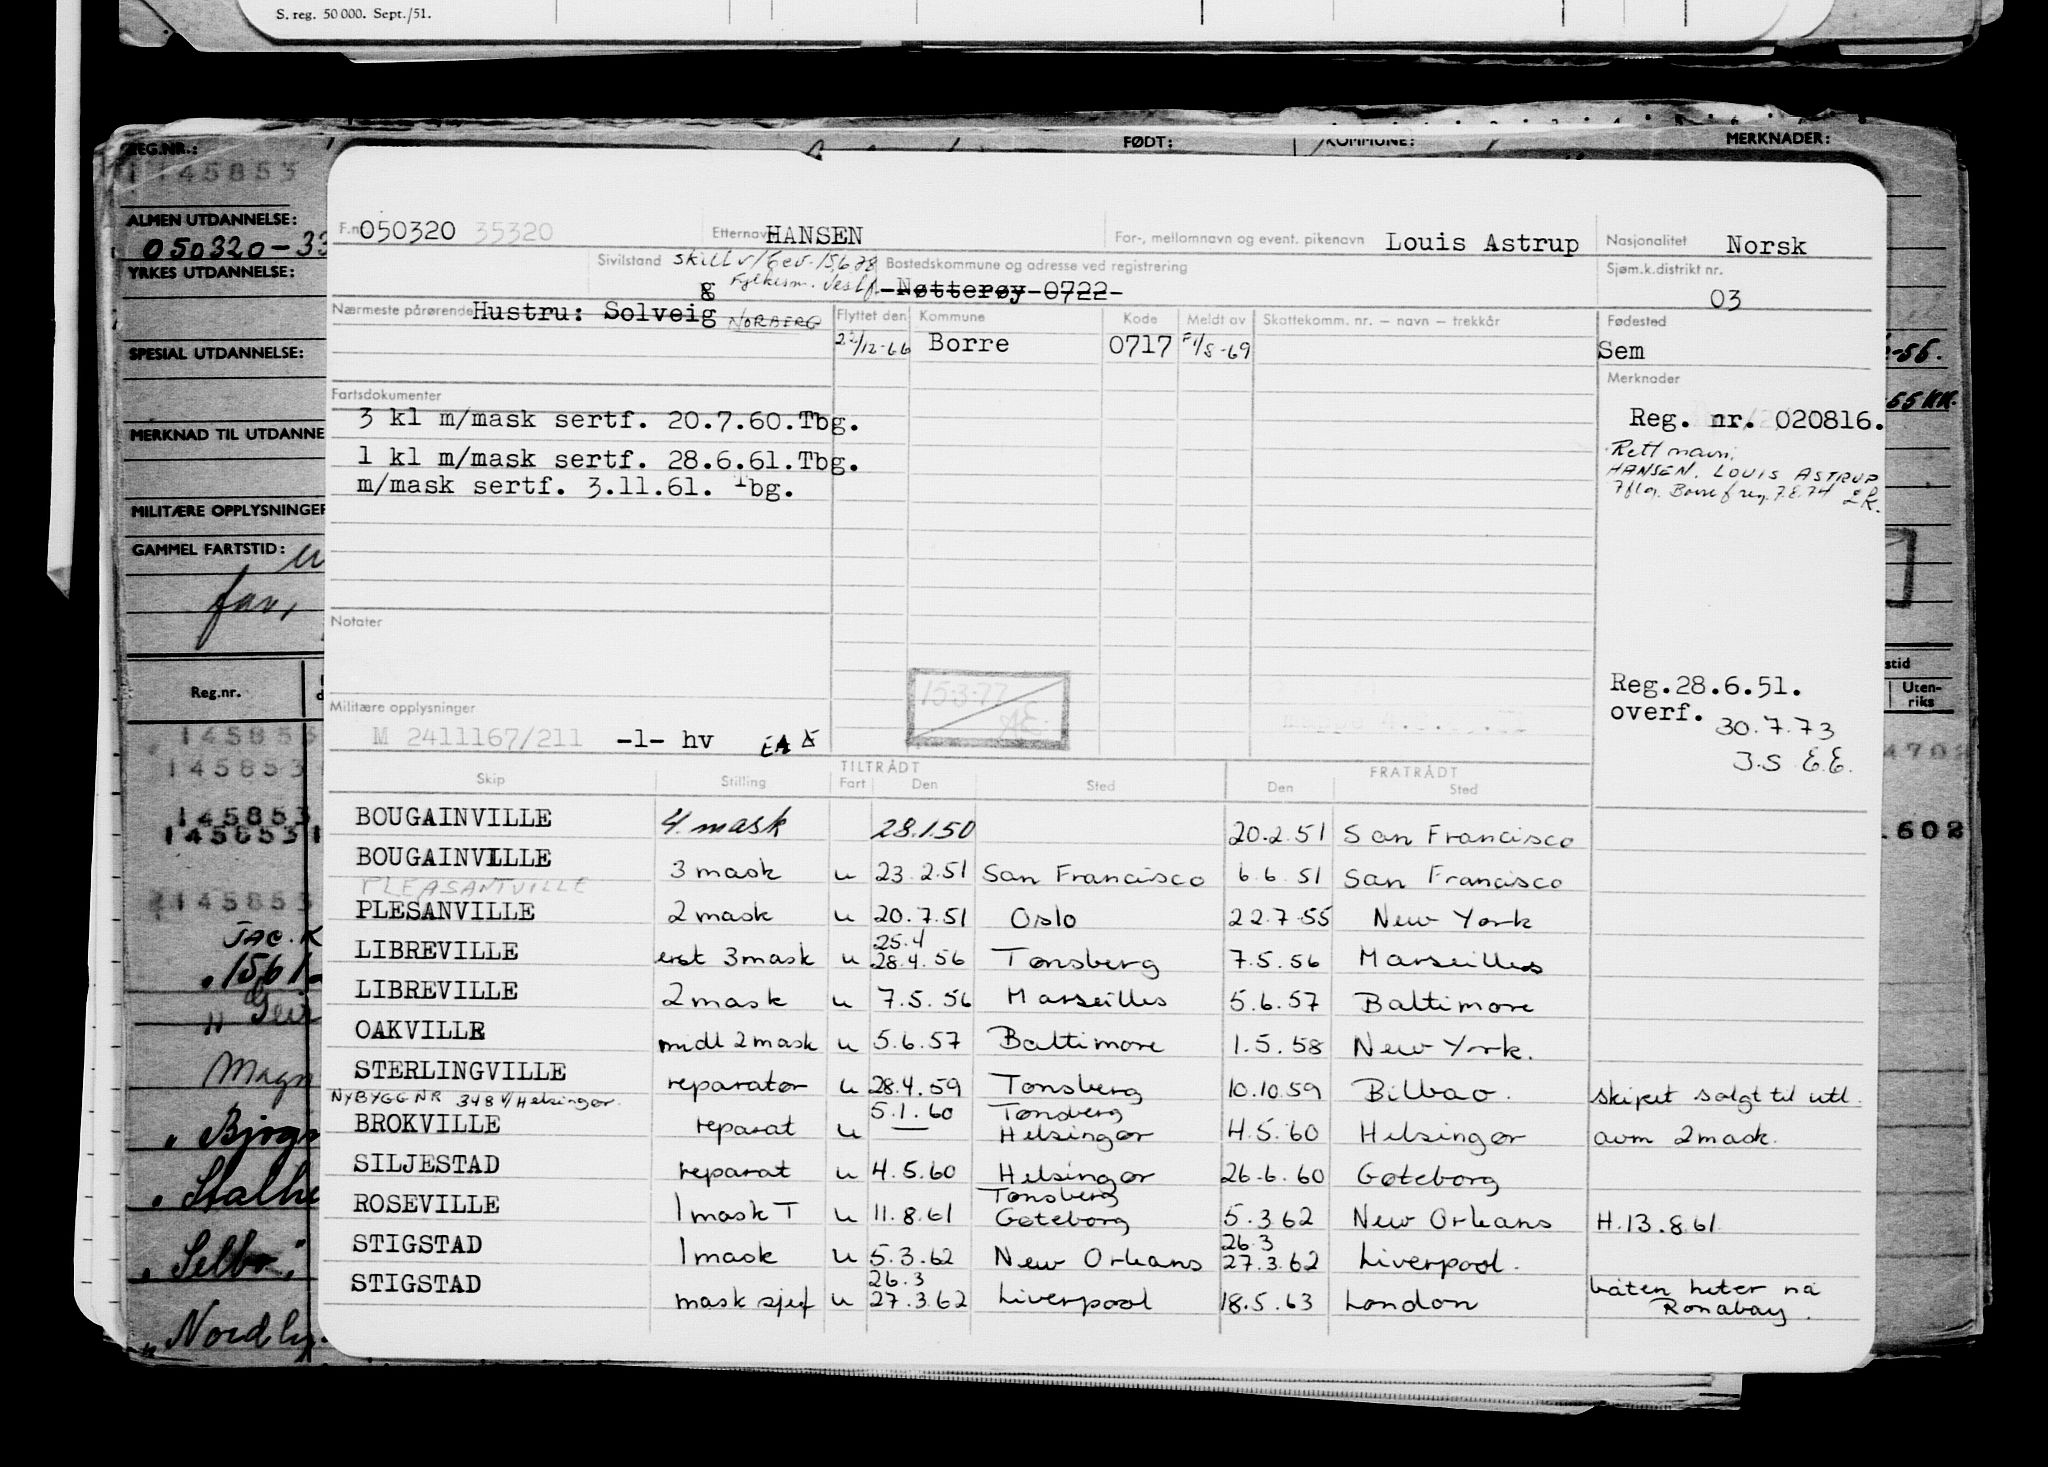 S. reg. 50 000. Sept./51.
REG.NR.:
FØDT:
KOMMUNE:
MERKNADER:
145853
ALMEN UTDANNELSE:
050320-33
YRKES UTDANNELSE:
SPESIAL UTDANNELSE:
MERKNAD TIL UTDANNE
MILITÆRE OPPLYSNINGER
GAMMEL FARTSTID:
far,
Reg.nr.
F.n 050320 35320
Etternavn HANSEN
For-, mellomnavn og event. pikenavn Louis Astrup
Nasjonalitet Norsk
Sivilstand skilt v/bev. 15678
Fylkesm. Vestf.
g
Bostedskommune og adresse ved registrering
-Nøtterøy-0722-
Sjøm.k.distrikt nr.
03
Nærmeste pårørende Hustru: Solveig NORBERG
Flyttet den Kommune Kode Meldt av Skattekomm. nr. – navn – trekkår
22/12-66 Borre 0717 F1/8-69
Fødested
Sem
Merknader
Fartsdokumenter
3 kl m/mask sertf. 20.7.60.Tbg.
1 kl m/mask sertf. 28.6.61.Tbg.
m/mask sertf. 3.11.61. Tbg.
Reg. nr. 020816.
Rett navn:
HANSEN, LOUIS ASTRUP
Iflg. Borre f.reg. 7.8.74
Notater
15.3.77
Militære opplysninger
M 2411167/211 -1- hv
Reg.28.6.51.
overf. 30.7.73
J.S E.E.
TILTRÅDT FRATRÅDT
Skip Stilling Fart Den Sted Den Sted
BOUGAINVILLE 4. mask 28.1.50 20.2.51 San Francisco
BOUGAINVILLE 3 mask u 23.2.51 San Francisco 6.6.51 San Francisco
PLEASANTVILLE
PLESANVILLE 2 mask u 20.7.51 Oslo 22.7.55 New York
25.4
LIBREVILLE erst 3 mask u 28.4.56 Tønsberg 7.5.56 Marseilles
LIBREVILLE 2 mask u 7.5.56 Marseilles 5.6.57 Baltimore
OAKVILLE midl 2 mask u 5.6.57 Baltimore 1.5.58 New York.
STERLINGVILLE reparatør u 28.4.59 Tønsberg 10.10.59 Bilbao. skipet solgt til utl.
NYBYGG NR 348 v/Helsingør. 5.1.60 Tønsberg
BROKVILLE reparat u — Helsingør 4.5.60 Helsingør avm 2 mask.
SILJESTAD reparat u 4.5.60 Helsingør 26.6.60 Gøteborg
Tønsberg
ROSEVILLE 1 mask T u 11.8.61 Gøteborg 5.3.62 New Orleans H.13.8.61
26.3
STIGSTAD 1 mask u 5.3.62 New Orleans 27.3.62 Liverpool.
26.3
STIGSTAD mask sjef u 27.3.62 Liverpool 18.5.63 London båten heter nå
Ronabay.
145853
145853
145853
145853
145853
Uten-
riks
4702
602